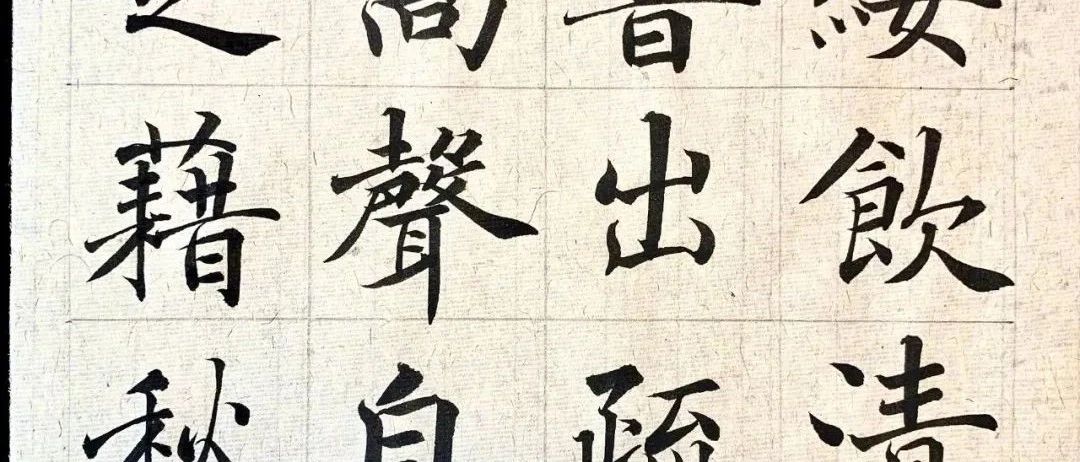 緌飲清
出疏
高聲自
藉秋